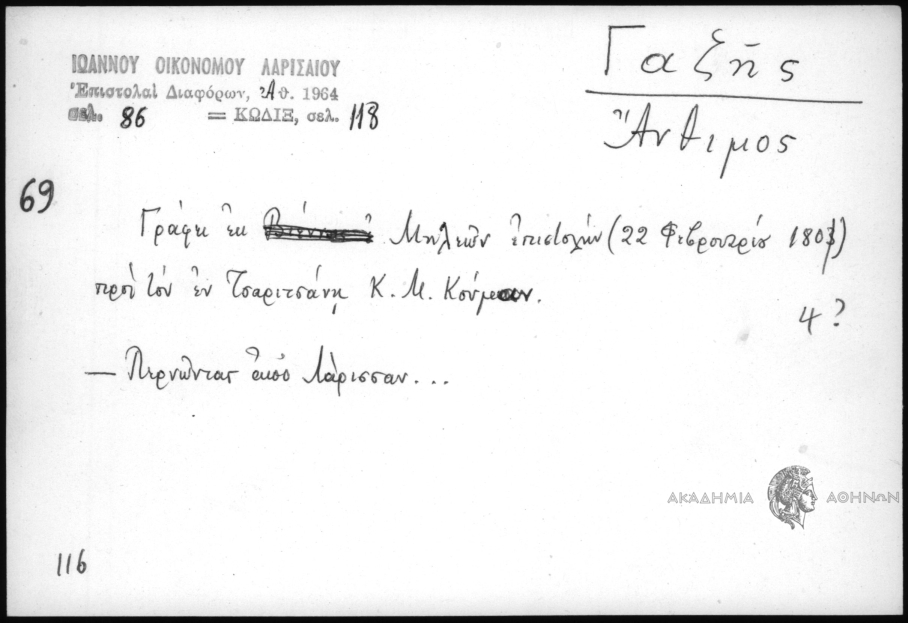 Γαζῆς
Ἄνθιμος
ΙΩΑΝΝΟΥ ΟΙΚΟΝΟΜΟΥ ΛΑΡΙΣΑΙΟΥ
Ἐπιστολαί Διαφόρων, Ἀθ. 1964
σελ. 86 = ΚΩΔΙΞ, σελ. 118
69
Γράφει ἐκ Μηλεῶν ἐπιστολήν (22 Φεβρουαρίου 1803)
πρὸς τὸν ἐν Τσαριτσάνῃ Κ. Μ. Κούμαν.
4?
— Περνῶντας ἀπὸ Λάρισσαν...
ΑΚΑΔΗΜΙΑ ΑΘΗΝΩΝ
116